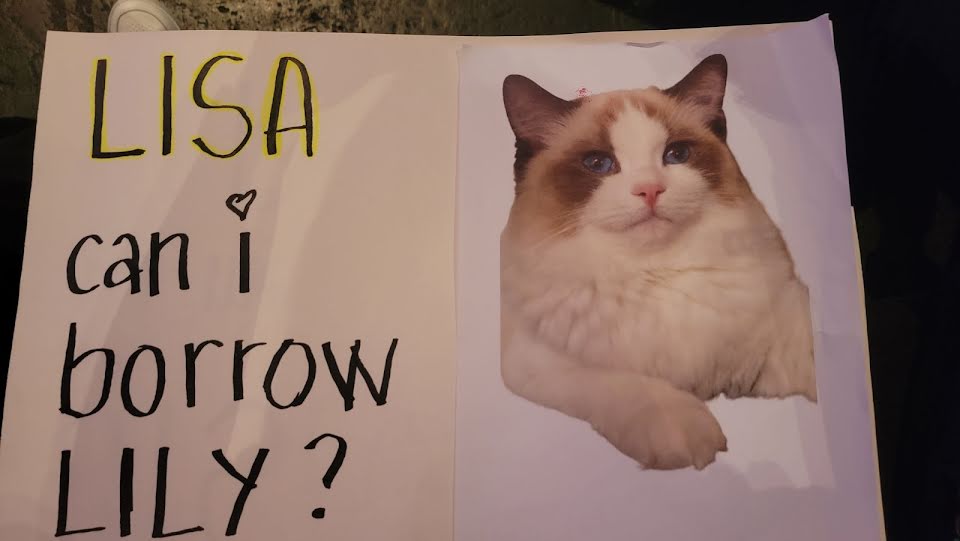 LISA
can i
borrow
LILY?